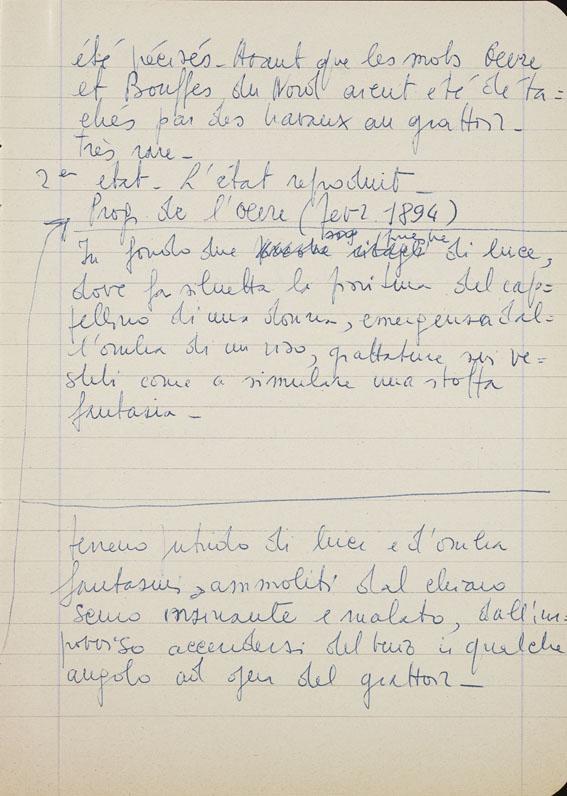 été précisés - Avant que les mots Oeuvre
et Bouffes du Nord aient été déta=
chés par des travaux au grattoir -
Très rare -
2en état - L'état reproduit -
Prog. de l'Oeuvre (fevr. 1894)
In fondo due di luce,
dove fa siluetta la puntina del cap=
pellino di una donna, emergenza dal=
l'ombra di un viso, grattature sui ve=
stiti come a simulare una stoffa
fantasia -
terreno putrido di luce e d'ombra
fantasmi, ammoliti dal chiaro
scuro insinuante e malato, dall'im=
provviso accendersi del buio in qualche
angolo ad opera del grattoir -